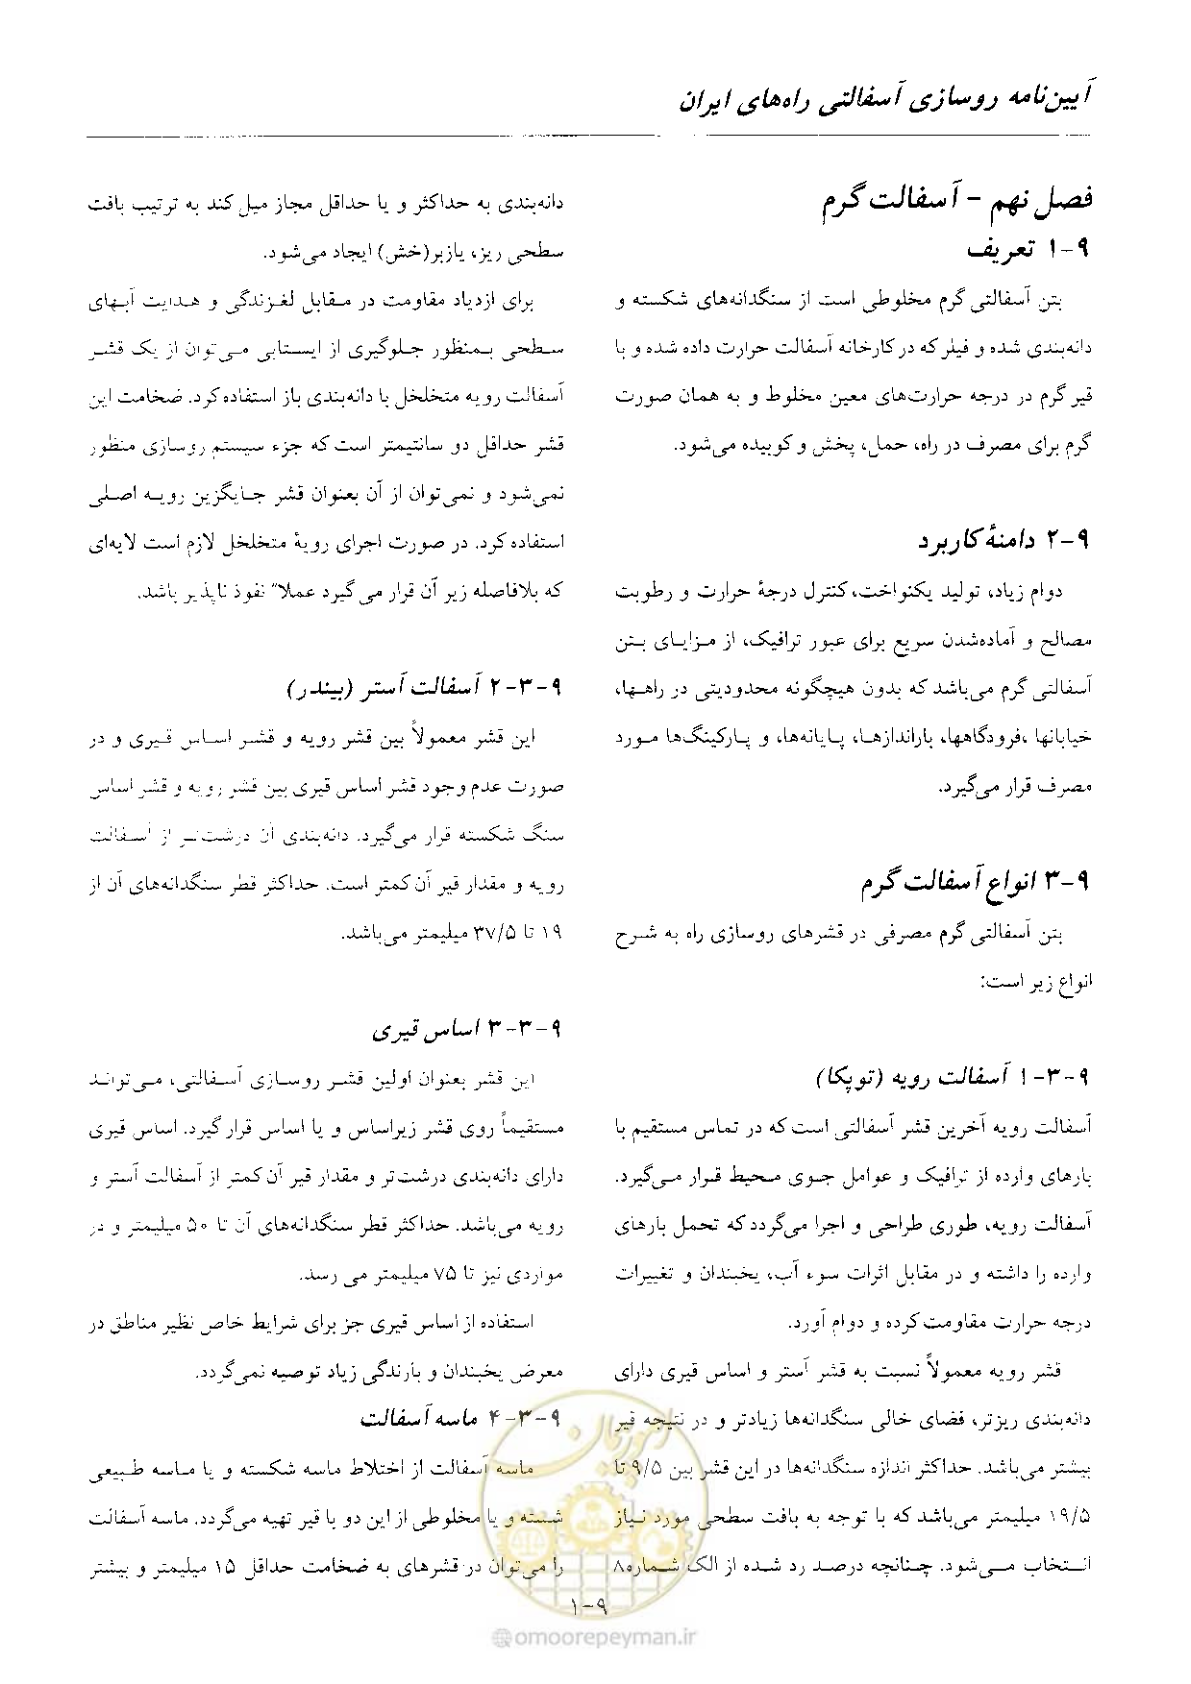 آیین‌نامه روسازی آسفالتی راه‌های ایران
فصل نهم - آسفالت گرم
۹-۱ تعریف
بتن آسفالتی گرم مخلوطی است از سنگدانه‌های شکسته و
دانه‌بندی شده و فیلر که در کارخانه آسفالت حرارت داده شده و با
قیر گرم در درجه حرارت‌های معین مخلوط و به همان صورت
گرم برای مصرف در راه، حمل، پخش و کوبیده می‌شود.
۹-۲ دامنهٔ کاربرد
دوام زیاد، تولید یکنواخت، کنترل درجهٔ حرارت و رطوبت
مصالح و آماده‌شدن سریع برای عبور ترافیک، از مزایای بتن
آسفالتی گرم می‌باشد که بدون هیچگونه محدودیتی در راهها،
خیابانها ،فرودگاهها، باراندازها، پایانه‌ها، و پارکینگ‌ها مورد
مصرف قرار می‌گیرد.
۹-۳ انواع آسفالت گرم
بتن آسفالتی گرم مصرفی در قشرهای روسازی راه به شرح
انواع زیر است:
۹-۳-۱ آسفالت رویه (توپکا)
آسفالت رویه آخرین قشر آسفالتی است که در تماس مستقیم با
بارهای وارده از ترافیک و عوامل جوی محیط قرار می‌گیرد.
آسفالت رویه، طوری طراحی و اجرا می‌گردد که تحمل بارهای
وارده را داشته و در مقابل اثرات سوء آب، یخبندان و تغییرات
درجه حرارت مقاومت کرده و دوام آورد.
قشر رویه معمولاً نسبت به قشر آستر و اساس قیری دارای
دانه‌بندی ریزتر، فضای خالی سنگدانه‌ها زیادتر و در نتیجه قیر
بیشتر می‌باشد. حداکثر اندازه سنگدانه‌ها در این قشر بین ۹/۵ تا
۱۹/۵ میلیمتر می‌باشد که با توجه به بافت سطحی مورد نیاز
انتخاب می‌شود. چنانچه درصد رد شده از الک شماره۸
دانه‌بندی به حداکثر و یا حداقل مجاز میل کند به ترتیب بافت
سطحی ریز، یازبر(خش) ایجاد می‌شود.
برای ازدیاد مقاومت در مقابل لغزندگی و هدایت آبهای
سطحی بمنظور جلوگیری از ایستابی می‌توان از یک قشر
آسفالت رویه متخلخل با دانه‌بندی باز استفاده کرد. ضخامت این
قشر حداقل دو سانتیمتر است که جزء سیستم روسازی منظور
نمی‌شود و نمی‌توان از آن بعنوان قشر جایگزین رویه اصلی
استفاده کرد. در صورت اجرای رویهٔ متخلخل لازم است لایه‌ای
که بلافاصله زیر آن قرار می گیرد عملا" نفوذ ناپذیر باشد.
۹-۳-۲ آسفالت آستر (بیندر)
این قشر معمولاً بین قشر رویه و قشر اساس قیری و در
صورت عدم وجود قشر اساس قیری بین قشر رویه و قشر اساس
سنگ شکسته قرار می‌گیرد. دانه‌بندی آن درشت‌تر از آسفالت
رویه و مقدار قیر آن کمتر است. حداکثر قطر سنگدانه‌های آن از
۱۹ تا ۳۷/۵ میلیمتر می‌باشد.
۹-۳-۳ اساس قیری
این قشر بعنوان اولین قشر روسازی آسفالتی، می‌تواند
مستقیماً روی قشر زیراساس و یا اساس قرار گیرد. اساس قیری
دارای دانه‌بندی درشت‌تر و مقدار قیر آن کمتر از آسفالت آستر و
رویه می‌باشد. حداکثر قطر سنگدانه‌های آن تا ۵۰ میلیمتر و در
مواردی نیز تا ۷۵ میلیمتر می رسد.
استفاده از اساس قیری جز برای شرایط خاص نظیر مناطق در
معرض یخبندان و بارندگی زیاد توصیه نمی‌گردد.
۹-۳-۴ ماسه آسفالت
ماسه آسفالت از اختلاط ماسه شکسته و یا ماسه طبیعی
شسته و یا مخلوطی از این دو با قیر تهیه می‌گردد. ماسه آسفالت
را می‌توان در قشرهای به ضخامت حداقل ۱۵ میلیمتر و بیشتر
۹-۱
امور پیمان
@omoorepeyman.ir